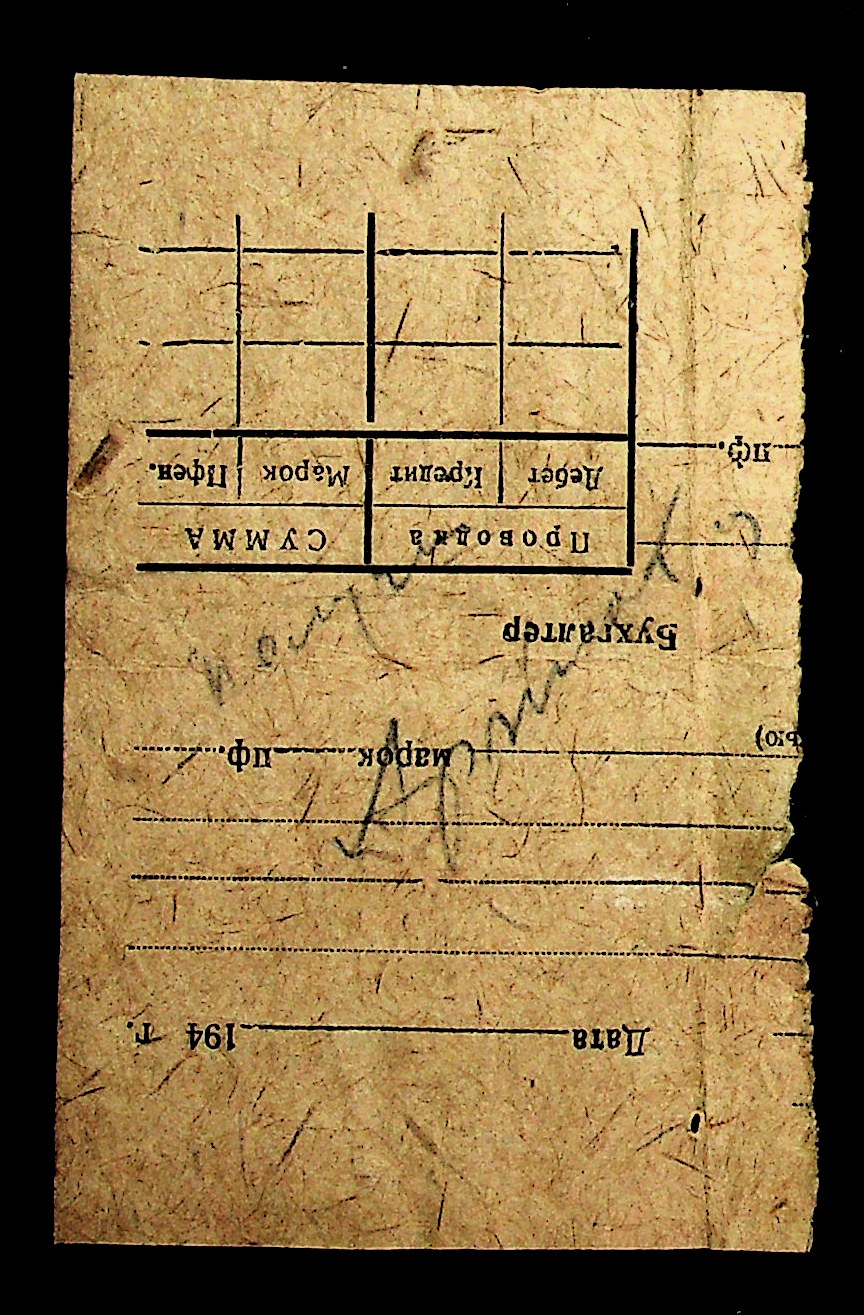 Дата 194 г.
ью) марок пф.
Бухгалтер
Проводка СУММА
Дебет Кредит Марок Пфен.
пф.